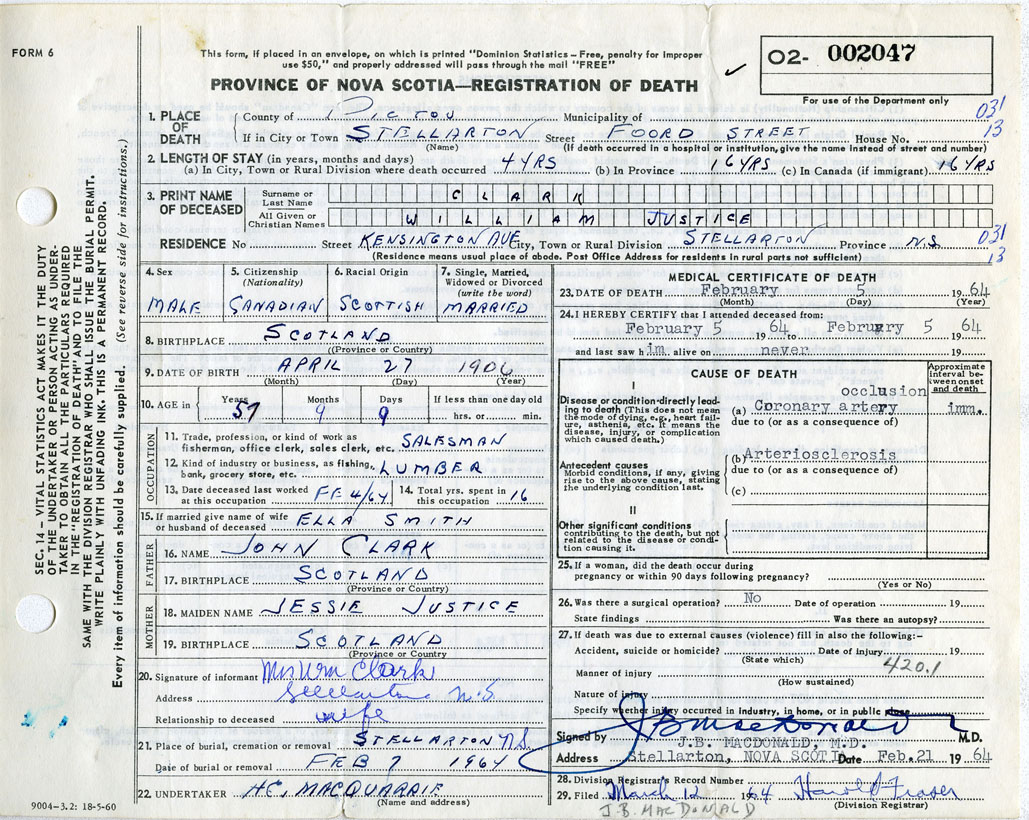 FORM 6
This form, if placed in an envelope, on which is printed "Dominion Statistics – Free, penalty for improper
use $50," and properly addressed will pass through the mail "FREE"
PROVINCE OF NOVA SCOTIA—REGISTRATION OF DEATH
O2- 002047
For use of the Department only
SEC. 14 – VITAL STATISTICS ACT MAKES IT THE DUTY
OF THE UNDERTAKER OR PERSON ACTING AS UNDER-
TAKER TO OBTAIN ALL THE PARTICULARS REQUIRED
IN THE "REGISTRATION OF DEATH" AND TO FILE THE
SAME WITH THE DIVISION REGISTRAR WHO SHALL ISSUE THE BURIAL PERMIT.
WRITE PLAINLY WITH UNFADING INK. THIS IS A PERMANENT RECORD.
Every item of information should be carefully supplied. (See reverse side for instructions.)
1. PLACE OF DEATH County of PICTOU Municipality of 031
If in City or Town STELLARTON Street FOORD STREET House No. 13
(Name) (If death occurred in a hospital or institution, give the name instead of street and number)
2. LENGTH OF STAY (in years, months and days)
(a) In City, Town or Rural Division where death occurred 4 YRS (b) In Province 16 YRS (c) In Canada (if immigrant) 16 YRS
3. PRINT NAME OF DECEASED
Surname or Last Name CLARK
All Given or Christian Names WILLIAM JUSTICE
RESIDENCE No Street KENSINGTON AVE City, Town or Rural Division STELLARTON Province N.S. 031
13
(Residence means usual place of abode. Post Office Address for residents in rural parts not sufficient)
4. Sex MALE
5. Citizenship (Nationality) CANADIAN
6. Racial Origin SCOTTISH
7. Single, Married, Widowed or Divorced (write the word) MARRIED
8. BIRTHPLACE SCOTLAND
(Province or Country)
9. DATE OF BIRTH APRIL 27 1906
(Month) (Day) (Year)
10. AGE in Years 57 Months 9 Days 9 If less than one day old
hrs. or min.
OCCUPATION
11. Trade, profession, or kind of work as
fisherman, office clerk, sales clerk, etc. SALESMAN
12. Kind of industry or business, as fishing,
bank, grocery store, etc. LUMBER
13. Date deceased last worked at this occupation FE 4/64 14. Total yrs. spent in this occupation 16
15. If married give name of wife
or husband of deceased ELLA SMITH
FATHER
16. NAME JOHN CLARK
17. BIRTHPLACE SCOTLAND
(Province or Country)
MOTHER
18. MAIDEN NAME JESSIE JUSTICE
19. BIRTHPLACE SCOTLAND
(Province or Country
20. Signature of informant Mrs Wm Clark
Address Stellarton N.S.
Relationship to deceased wife
21. Place of burial, cremation or removal STELLARTON N.S.
Date of burial or removal FEB 7 1964
22. UNDERTAKER H.C. MACQUARRIE
(Name and address)
9004–3.2: 18-5-60
MEDICAL CERTIFICATE OF DEATH
23. DATE OF DEATH February 5 1964
(Month) (Day) (Year)
24. I HEREBY CERTIFY that I attended deceased from:
February 5 1964 to February 5 1964
and last saw h im alive on never 19
CAUSE OF DEATH
Approximate interval between onset and death
I
Disease or condition directly leading to death (This does not mean the mode of dying, e.g., heart failure, asthenia, etc. It means the disease, injury, or complication which caused death.)
(a) Coronary artery occlusion imm.
due to (or as a consequence of)
Antecedent causes
Morbid conditions, if any, giving rise to the above cause, stating the underlying condition last.
(b) Arteriosclerosis
due to (or as a consequence of)
(c)
II
Other significant conditions
contributing to the death, but not related to the disease or condition causing it.
25. If a woman, did the death occur during
pregnancy or within 90 days following pregnancy?
(Yes or No)
26. Was there a surgical operation? No Date of operation 19
State findings Was there an autopsy?
27. If death was due to external causes (violence) fill in also the following:–
Accident, suicide or homicide? Date of injury 19
(State which) 420.1
Manner of injury
(How sustained)
Nature of injury
Specify whether injury occurred in industry, in home, or in public place
Signed by J B MacDonald M.D.
J.B. MACDONALD, M.D.
Address Stellarton, NOVA SCOTIA Date Feb. 21 1964
28. Division Registrar's Record Number
29. Filed March 12 1964 Harold Fraser
(Division Registrar)
J.B. MACDONALD